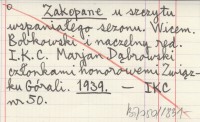 Zakopane u szczytu
wspaniałego sezonu. Wicem.
Bobkowski i naczelny red.
I.K.C. Marjan Dąbrowski
członkami honorowemi Związ-
ku Górali. 1939. — IKC
nr. 50.